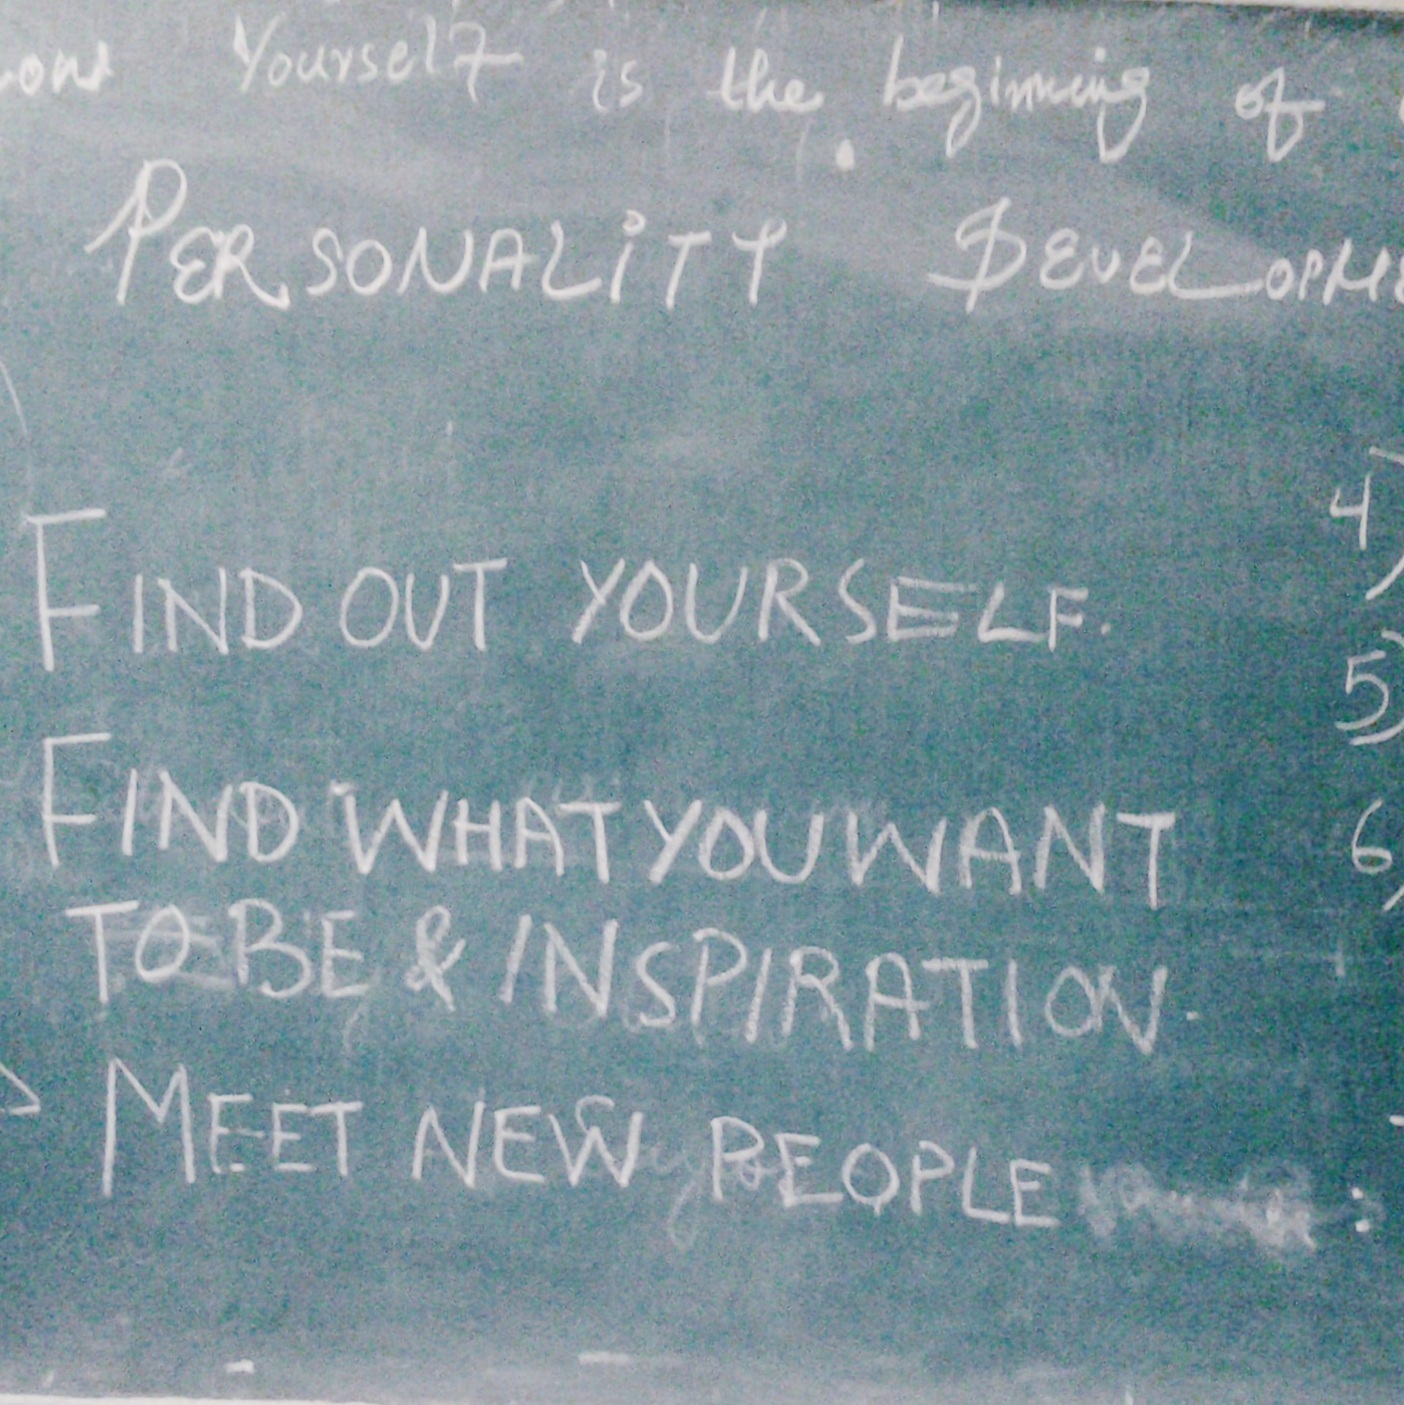 now Yourself is the beginning of
PERSONALITY DEVELOPME
FIND OUT YOURSELF.
FIND WHAT YOU WANT
TO BE & INSPIRATION.
MEET NEW PEOPLE :
4)
5)
6)